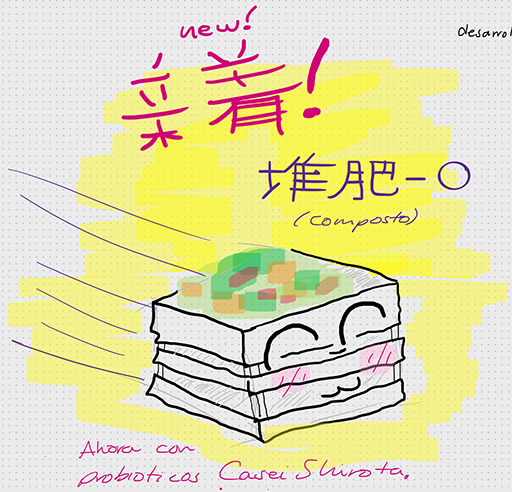 new!
desarrol
堆肥-O
(composto)
Ahora con
probioticos Casei Shirota.